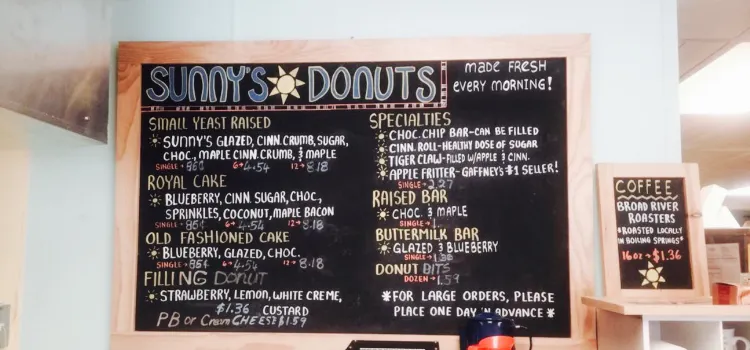 SUNNY'S DONUTS
made FRESH
every MORNING!
SMALL YEAST RAISED
SUNNY'S GLAZED, CINN. CRUMB, SUGAR,
CHOC., MAPLE CINN. CRUMB, & MAPLE
SINGLE → 85¢ 6 → 4.54 12 → 8.18
ROYAL CAKE
BLUEBERRY, CINN. SUGAR, CHOC.,
SPRINKLES, COCONUT, MAPLE BACON
SINGLE → 85¢ 6 → 4.54 12 → 8.18
OLD FASHIONED CAKE
BLUEBERRY, GLAZED, CHOC.
SINGLE → 85¢ 6 → 4.54 12 → 8.18
FILLING DONUT
STRAWBERRY, LEMON, WHITE CREME,
$1.36 CUSTARD
PB or Cream CHEESE $1.59
SPECIALTIES
CHOC. CHIP BAR-CAN BE FILLED
CINN. ROLL-HEALTHY DOSE OF SUGAR
TIGER CLAW-FILLED W/APPLE & CINN.
APPLE FRITTER-GAFFNEY'S #1 SELLER!
SINGLE → 2.27
RAISED BAR
CHOC. & MAPLE
SINGLE → 1.
BUTTERMILK BAR
GLAZED & BLUEBERRY
SINGLE → 1.36
DONUT BITS
DOZEN → 1.59
*FOR LARGE ORDERS, PLEASE
PLACE ONE DAY IN ADVANCE *
COFFEE
BROAD RIVER
ROASTERS
*ROASTED LOCALLY
IN BOILING SPRINGS*
16oz → $1.36